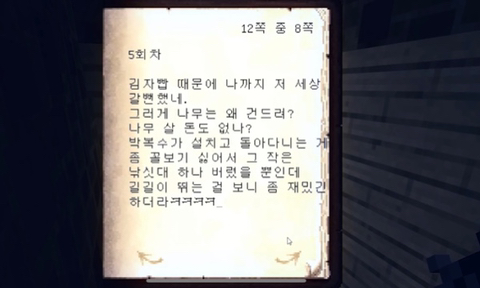 12쪽 중 8쪽
5회차
김자빱 때문에 나까지 저 세상
갈뻔했네.
그러게 나무는 왜 건드려?
나무 살 돈도 없나?
박복수가 설치고 돌아다니는 게
좀 꼴보기 싫어서 그 작은
낚싯대 하나 버렸을 뿐인데
길길이 뛰는 걸 보니 좀 재밌긴
하더라ㅋㅋㅋㅋ_